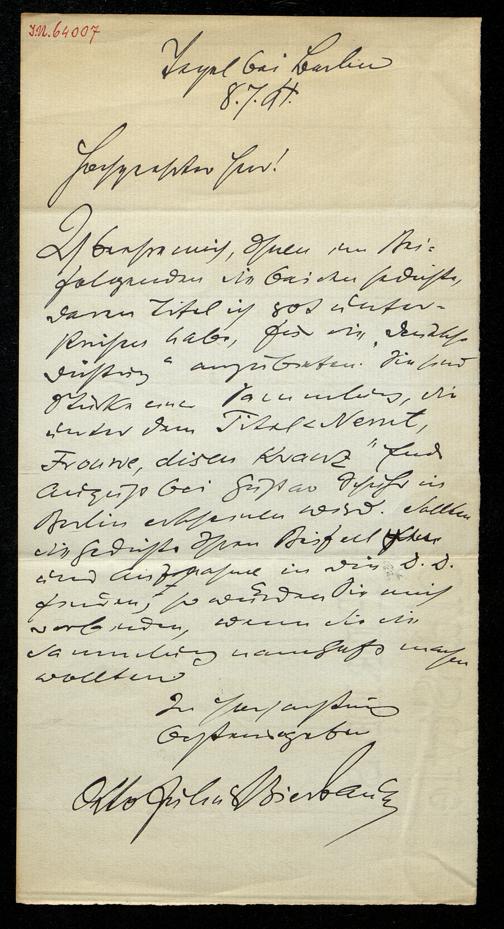 I.N. 64007
Tegel bei Berlin
8.7.
Hochgeehrter Herr!
Ich beehre mich, Ihnen im Bei-
folgenden die beiden Gedichte,
deren Titel ich rot unter-
strichen habe, für die „Deutsche
Dichtung“ anzubieten. Sie sind
Stücke einer Sammlung, die
unter dem Titel „Nemt,
Frouwe, disen Kranz“ Ende
August bei Gustav Schuhr in
Berlin erscheinen wird. Sollten
die Gedichte Ihren Beifall
und Aufnahme in die D. D.
finden, so würden Sie mich
verbinden, wenn Sie die
Sammlung namhaft machen
wollten.
In Hochachtung
Ergebenst
Otto Julius Bierbaum